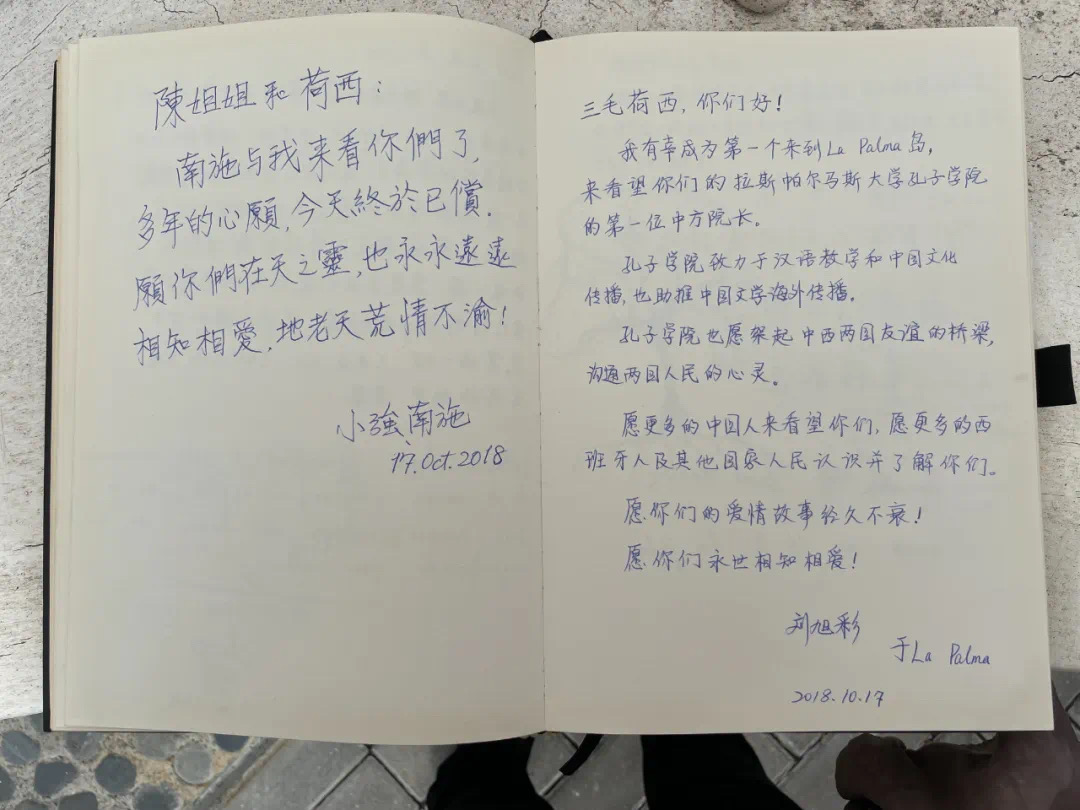 陳姐姐和荷西：
南施与我来看你們了，
多年的心願，今天終於已償．
願你們在天之靈，也永永遠遠
相知相愛，地老天荒情不渝！
小強、南施
17.Oct.2018
三毛荷西，你们好！
我有幸成为第一个来到La Palma岛，
来看望你们的拉斯帕尔马斯大学孔子学院
的第一位中方院长。
孔子学院致力于汉语教学和中国文化
传播，也助推中国文学海外传播。
孔子学院也愿架起中西两国友谊的桥梁，
沟通两国人民的心灵。
愿更多的中国人来看望你们，愿更多的西
班牙人及其他国家人民认识并了解你们。
愿你们的爱情故事经久不衰！
愿你们永世相知相爱！
刘旭彩
于La Palma
2018.10.17